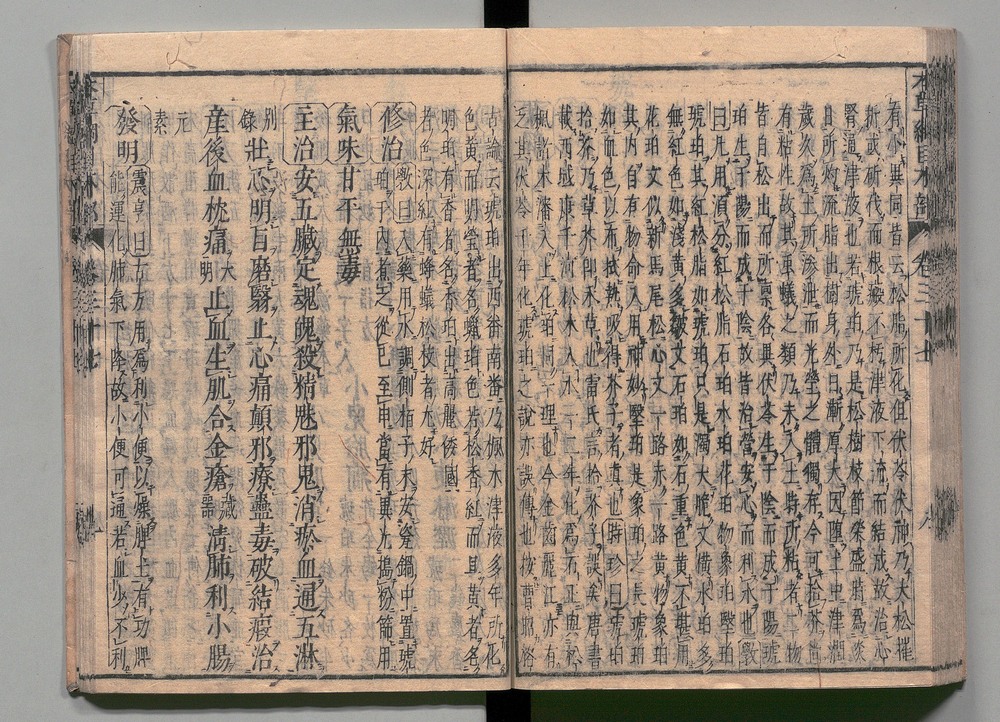 本草綱目木部 卷三十七
有小異同昔云松脂所化但茯苓茯神乃大松摧
折或斫伐而根瘢不朽津液下流而結成故治心
腎通津液也若琥珀乃是松樹枝節榮盛時為炎
日所灼流脂出樹身外日漸厚大因墮土中津潤
歲久為土所滲泄而光瑩之體獨存今可拾芥尚
有粘性故其蟲蟻之類乃未入土時所粘者二物
皆自松出而所稟各異伏苓生于陰而成于陽琥
珀生于陽而成于陰故皆治營安心而利水也斅
曰凡用須分紅松脂石珀水珀花珀物象珀瑿珀
琥珀其紅松脂如琥珀只是濁大脆文橫水珀多
無紅色如淺黃多皺文石珀如石重色黃不堪用
花珀文似新馬尾松心文一路赤一路黃物象珀
其內自有物命入用神妙瑿珀是象珀之長琥珀
如血色以布拭熱吸得芥子者真也時珍曰琥珀
拾芥乃草芥即禾草也雷氏言拾芥子誤矣唐書
載西域康干河松木入水一二年化為石正與松
楓諸木瀋入土化珀同一理也今金齒麗江亦有
之其伏苓千年化琥珀之說亦誤傳也按曹昭格
古論云琥珀出西番南番乃楓木津液多年所化
色黃而明瑩者名蠟珀色若松香紅而且黃者名
明珀有香者名香珀出高麗倭國
者色深紅有蜂蟻松枝者尤好
修治 斅曰入藥用水調側柏子末安瓷鍋中置琥
珀于內煮之從巳至申當有異光搗粉篩用
氣味甘平無毒
主治安五臟定魂魄殺精魅邪鬼消瘀血通五淋
別錄 壯心明目磨翳止心痛顛邪療蠱毒破結瘕治
產後血枕痛 大明 止血生肌合金瘡 藏器 清肺利小腸
元素
發明 震亨曰古方用為利小便以燥脾土有功脾
能運化肺氣下降故小便可通若血少不利